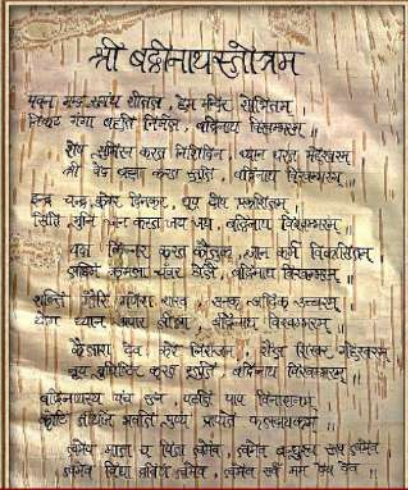 श्री बद्रीनाथस्तोत्रम
पवन मन्द सुगंध शीतल, हेम मन्दिर शोभितम् ।
निकट गंगा बहति निर्मल, बद्रिनाथ विश्वम्भरम् ॥
शेष सुमिरन करत निशिदिन, ध्यान धरत महेश्वरम्
श्री वेद ब्रह्मा करत स्तुति, बद्रिनाथ विश्वम्भरम् ॥
इन्द्र चन्द्र कुबेर दिनकर, धूप दीप
सिद्धि मुनि जन करत जय जय, बद्रिनाथ विश्वम्भरम् ॥
किन्नर करत कौतुक, ज्ञान
कमला चंवर डोले, बद्रिनाथ विश्वम्भरम् ॥
शक्ति गौरि गणेश शारद, उच्चारम्
योग ध्यान अपार लीला, बद्रिनाथ विश्वम्भरम् ॥
कैलाश देव निरंजन, शैल शिखर महेश्वरम्
करत स्तुति, बद्रिनाथ विश्वम्भरम् ॥
बद्रिनाथस्य पंच रत्न, पाप विनाशनम्
कोटि भवति पुण्य
त्वमेव माता च पिता त्वमेव, त्वमेव बन्धुश्च सखा त्वमेव ।
त्वमेव विद्या द्रविणं त्वमेव, त्वमेव सर्वं मम देव देव ॥